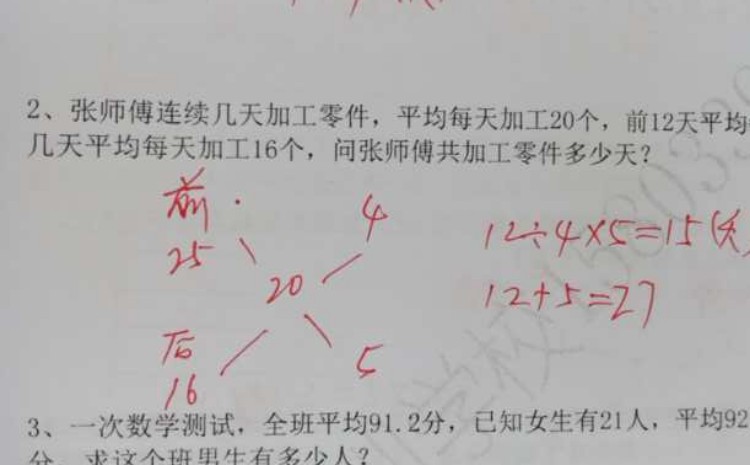 2、张师傅连续几天加工零件，平均每天加工20个，前12天平均
几天平均每天加工16个，问张师傅共加工零件多少天？
前
25
4
20
后
16
5
12÷4×5=15(天
12+5=27
3、一次数学测试，全班平均91.2分，已知女生有21人，平均92
分，求这个班男生有多少人？